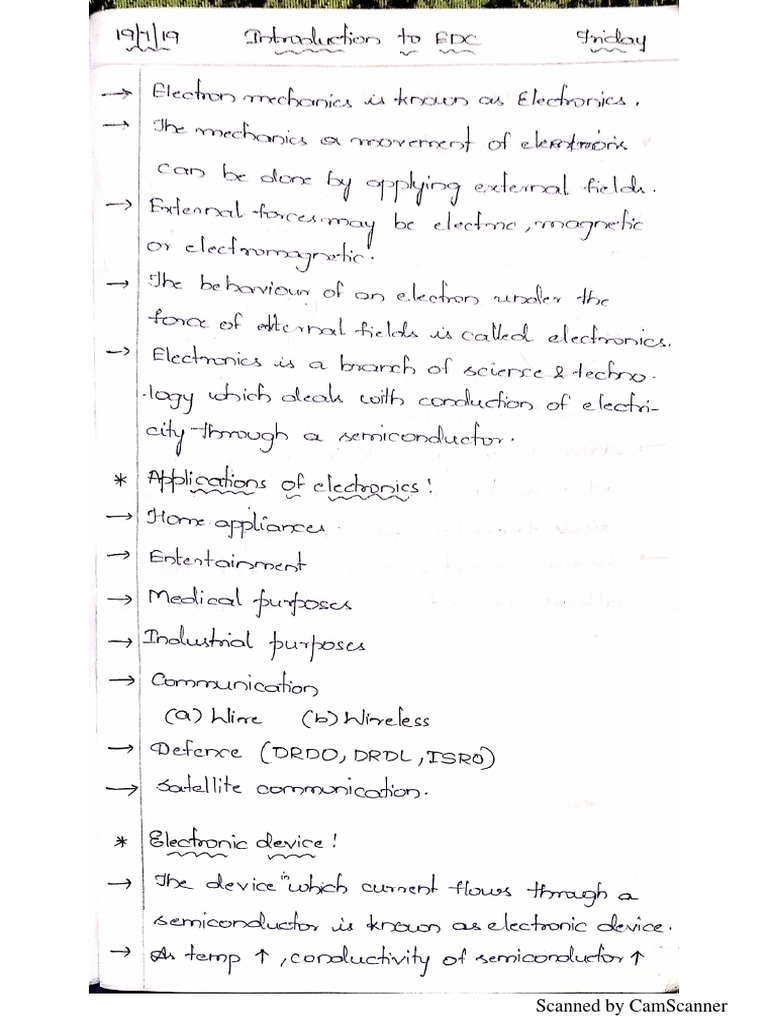 19/1/19 Introduction to EDC Friday
→ Electron mechanics is known as Electronics.
→ The mechanics a movement of electrons
can be done by applying external fields.
→ External forces may be electric, magnetic
or electromagnetic.
→ The behaviour of an electron under the
force of external fields is called electronics.
→ Electronics is a branch of science & techno-
-logy which deals with conduction of electri-
city through a semiconductor.
* Applications of electronics:
→ Home appliances.
→ Entertainment
→ Medical purposes
→ Industrial purposes
→ Communication
(a) Wire (b) Wireless
→ Defence (DRDO, DRDL, ISRO)
→ Satellite communication.
* Electronic device:
→ The device in which current flows through a
semiconductor is known as electronic device.
→ As temp ↑, conductivity of semiconductor ↑
Scanned by CamScanner